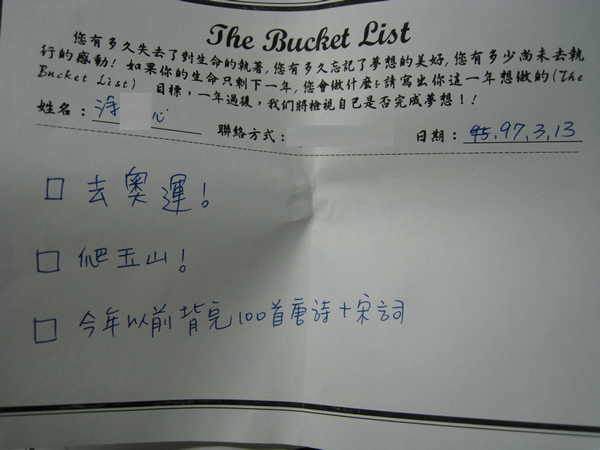 The Bucket List
您有多久失去了對生命的執著,您有多久忘記了夢想的美好,您有多少尚未去執
行的感動!如果你的生命只剩下一年,您會做什麼?請寫出你這一年想做的(The
Bucket List) 目標,一年過後,我們將檢視自己是否完成夢想!!
姓名: 涂 心 聯絡方式: 日期: 97.3.13
□ 去奧運!
□ 爬玉山!
□ 今年以前背完100首唐詩+宋詞